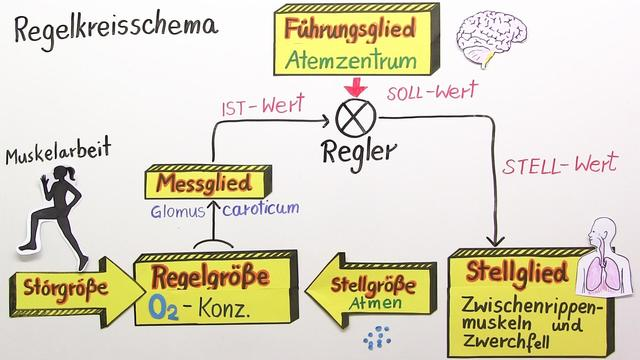 Regelkreisschema
Führungsglied
Atemzentrum
IST-Wert
SOLL-Wert
Regler
STELL-Wert
Muskelarbeit
Messglied
Glomus caroticum
Störgröße
Regelgröße
O2-Konz.
Stellgröße
Atmen
Stellglied
Zwischenrippen-
muskeln und
Zwerchfell